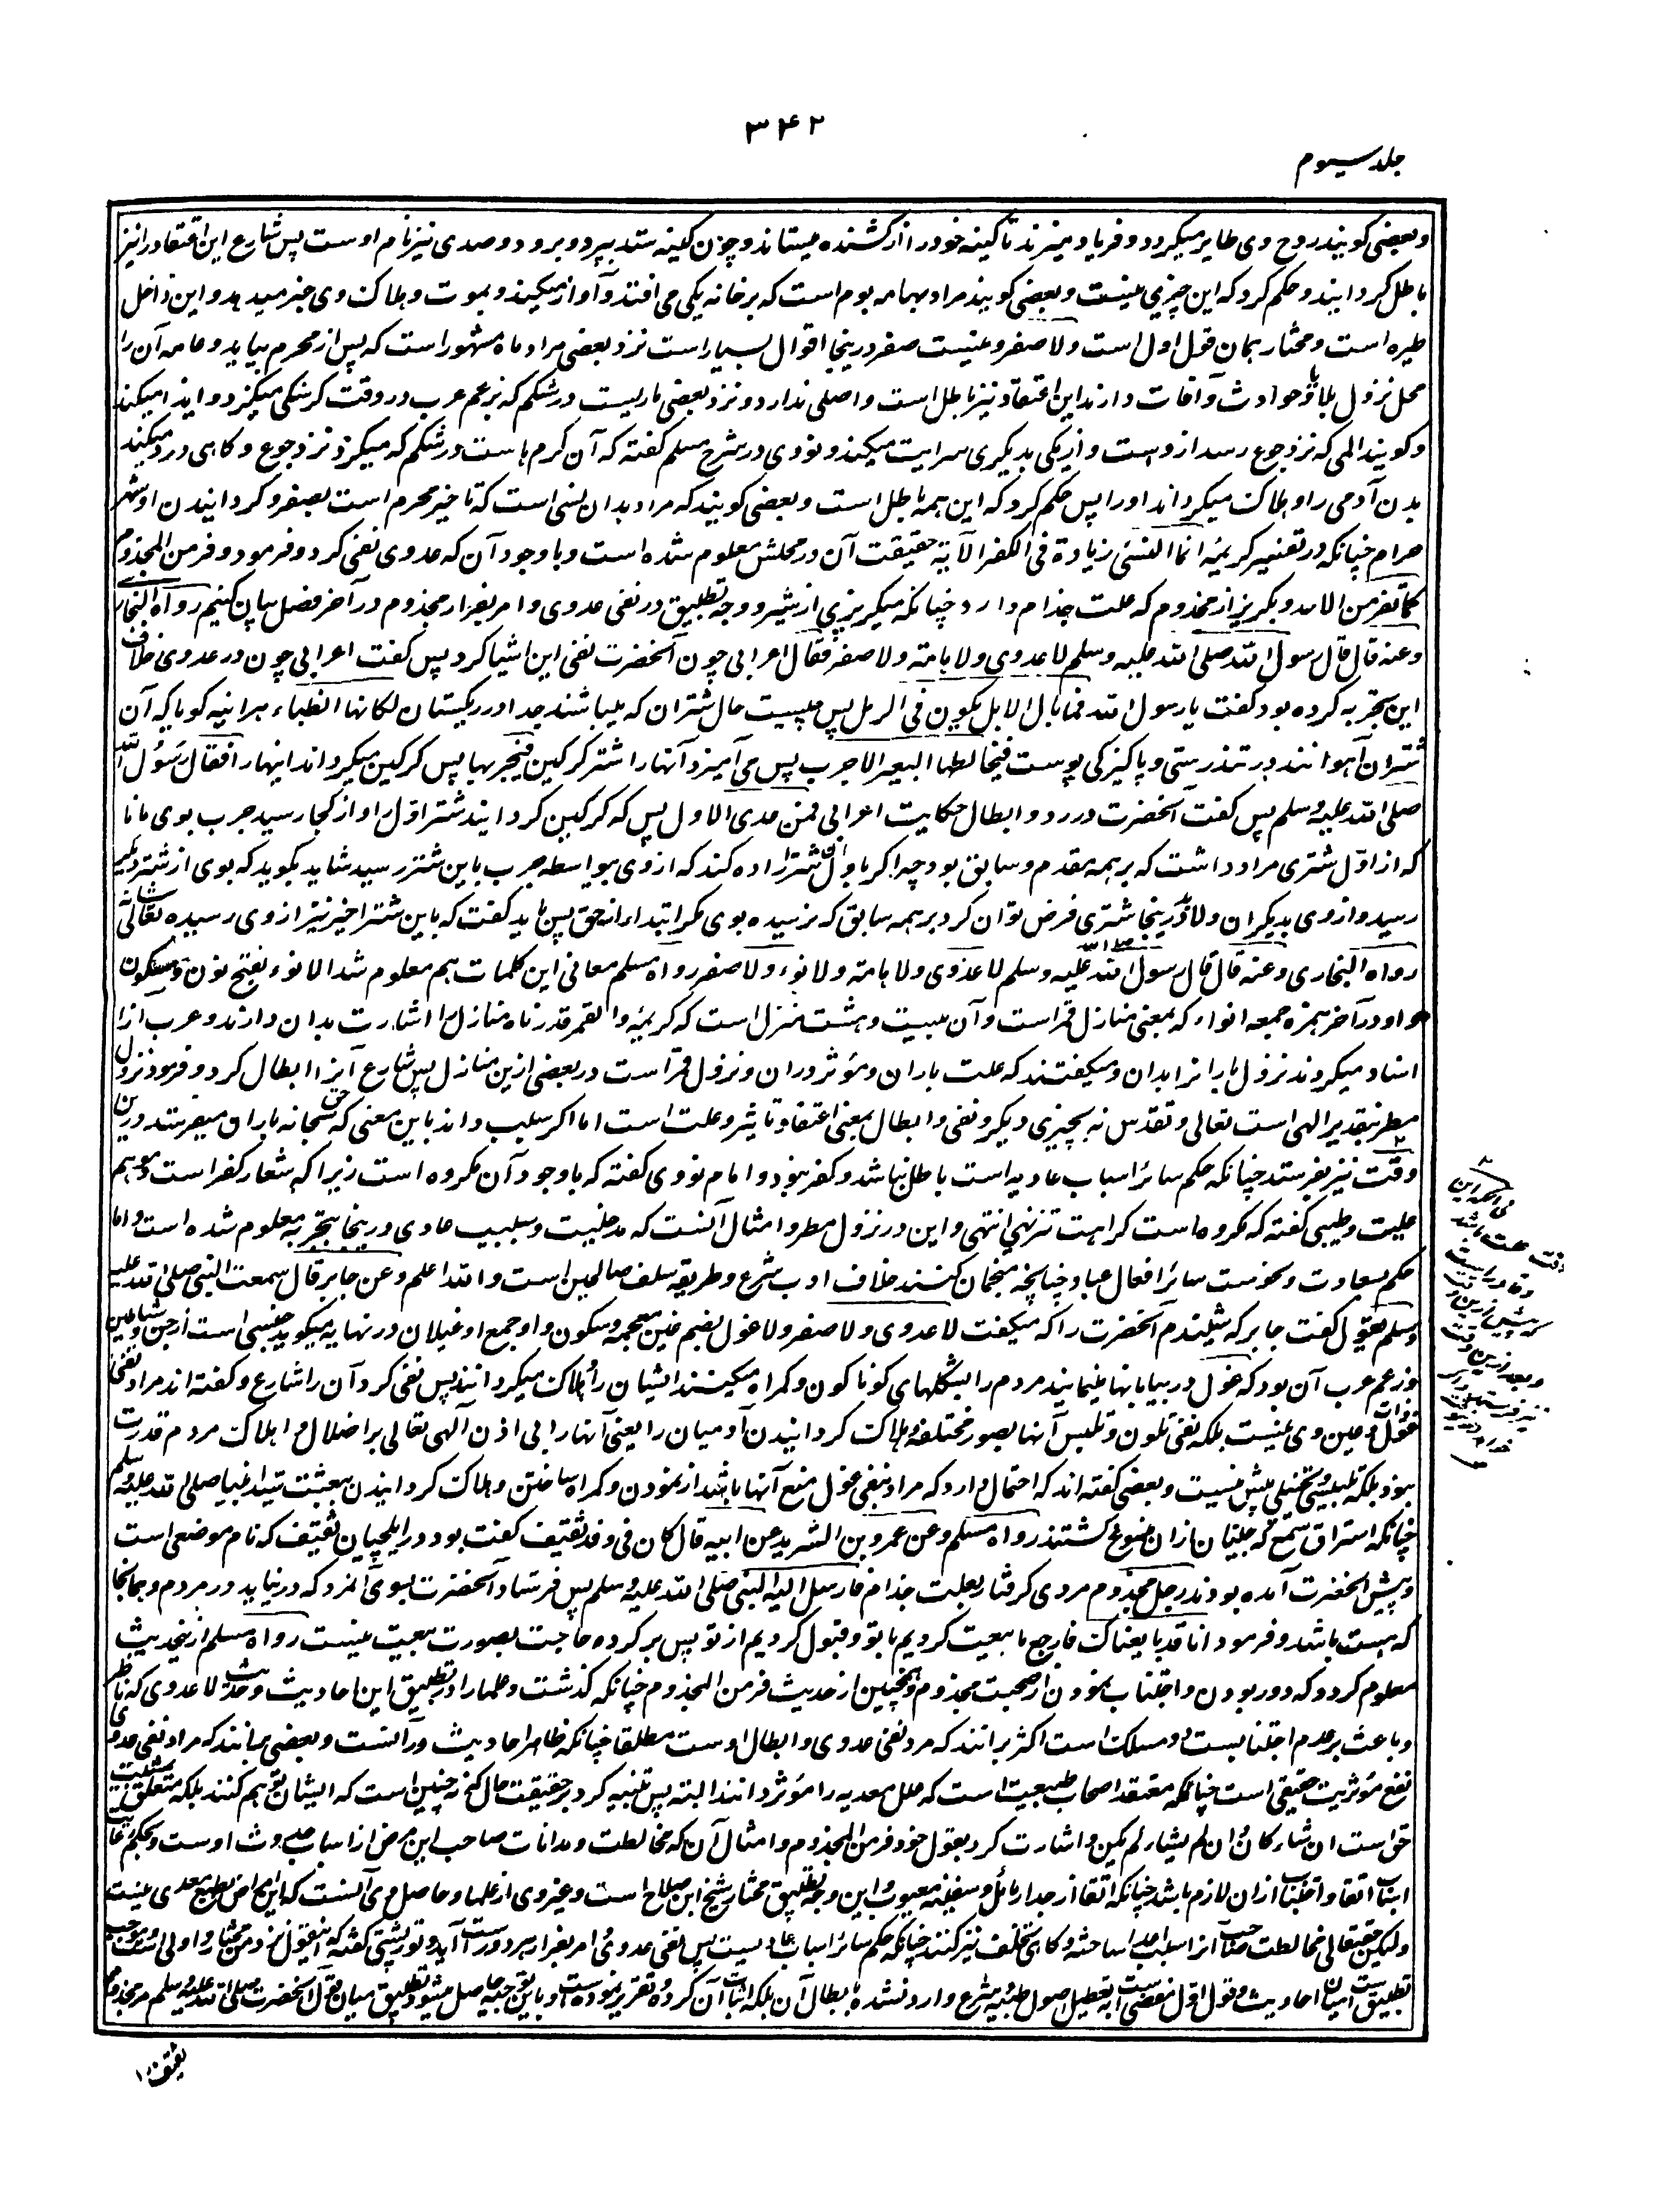 ۳۴۲
جلد سیوم
و بعضی گویند روح وی طایر میگردد و فریاد میزند تا کینه خود را از کشنده میستاند و چون کینه ستد بپرد و برود و صدی نیز نام اوست پس شارع این اعتقاد را نیز
باطل گردانید و حکم کرد که این چیزی نیست و بعضی گویند مراد بهامه بوم است که بر خانه یکی می افتد و آواز میکند و بموت و هلاک وی خبر میدهد و این داخل
طیره است و مختار همان قول اول است ولا صفر و نیست صفر درینجا اقوال بسیار است نزد بعضی مراد ماه مشهور است که پس از محرم بیاید و عامه آن را
محل نزول بلاها و حوادث و آفات دارند این اعتقاد نیز باطل است و اصلی ندارد و نزد بعضی ماریست در شکم که بزعم عرب در وقت گرسنگی میگزد و ایذا میکند
و گویند المی که نزد جوع رسد ازوست و از یکی بدیگری سرایت میکند و نووی در شرح مسلم گفته که آن کرم هاست در شکم که میگزد نزد جوع و گاهی در میکند
بدن آدمی را و هلاک میگرداند او را پس حکم کرد که این همه باطل است و بعضی گویند که مراد بدان نسی است که تاخیر محرم است بصفر و گردانیدن او شهر
حرام چنانکه در تفسیر کریمه انما النسئ زیادة فی الکفر الآیة حقیقت آن در محلش معلوم شده است و با وجود آن که عدوی نفی کرد و فرمود و فر من المجذوم
کما تفر من الاسد و بگریز از مجذوم که علت جذام دارد چنانکه میگریزی از شیر و وجه تطبیق در نفی عدوی و امر بفرار مجذوم در آخر فصل بیان کنیم رواه البخاری
وعنه قال قال رسول الله صلی الله علیه وسلم لا عدوی ولا هامة ولا صفر فقال اعرابی چون آنحضرت نفی این اشیا کرد پس گفت اعرابی چون در عدوی خلاف
این تجربه کرده بود گفت یا رسول الله فما بال الابل یکون فی الرمل پس چیست حال شتران که میباشند جدا در ریگستان لکانها الظباء هر آئینه گویا که آن
شتران آهوانند در تندرستی و پاکیزگی پوست فیخالطها البعیر الاجرب پس می آمیزد آنها را شتر گرگین فیجربها پس گرگین میگرداند اینها را فقال رسول الله
صلی الله علیه وسلم پس گفت آنحضرت در رد و ابطال حکایت اعرابی فمن عدی الاول پس که گرگین گردانید شتر اول را و از کجا رسید جرب بوی مانا
که از اول شتری مراد داشت که بر همه مقدم و سابق بود چه اگر باول آن شتر اراده کند که از وی بواسطه جرب باین شتر رسید شاید بگوید که بوی از شتر دیگر
رسید و از وی بدیگران ولابد درینجا شتری فرض توان کرد بر همه سابق که نرسیده بوی مگر ابتداء از حق پس باید گفت که باین شتر اخیر نیز از وی رسیده تعالی شانه
رواه البخاری وعنه قال قال رسول الله صلی الله علیه وسلم لا عدوی ولا هامة ولا نوء ولا صفر رواه مسلم معانی این کلمات هم معلوم شد الا نوء بفتح نون و سکون
واو در آخر همزه جمعه انواء که بمعنی منازل قمر است و آن بیست و هشت منزل است که کریمه والقمر قدرناه منازل را اشارت بدان دارند و عرب ازا
اسناد میکردند نزول باران را بدان و میگفتند که علت باران و مؤثر دران و نزول قمر است در بعضی ازین منازل پس شارع آنرا ابطال کرد و فرمود نزول
مطر بتقدیر الهی است تعالی و تقدس نه بچیزی دیگر و نفی و ابطال بمعنی اعتقاد تاثیر و علت است اما اگر سبب داند باین معنی که حق سبحانه باران میفرستد درین
وقت نیز بفرستد چنانکه حکم سائر اسباب عادیه است باطل نباشد و کفر نبود و امام نووی گفته که با وجود آن مکروه است زیرا که شعار کفر است و موهم
علیت و طیبی گفته که مکروه است کراهت تنزیهی انتهی و این در نزول مطر و امثال آنست که مدخلیت و سببیت عادی درینجا بتجربه معلوم شده است و اما
حکم بسعادت و نحوست سائر افعال عباد چنانچه منجمان کنند خلاف ادب شرع و طریقه سلف صالحین است والله اعلم وعن جابر قال سمعت النبی صلی الله علیه
وسلم یقول گفت جابر که شنیدم آنحضرت را که میگفت لا عدوی ولا صفر ولا غول بضم غین معجمه و سکون واو جمع او غیلان در نهایه میگوید جنسی است از جن و شیاطین
و زعم عرب آن بود که غول در بیابانها مینمایند مردم را بشکلهای گوناگون و گمراه میکنند ایشان را و هلاک میگردانند پس نفی کرد آن را شارع و گفته اند مراد نفی
غول و عین وی نیست بلکه نفی تلون و تلبیس آنها بصور مختلفه و هلاک گردانیدن آدمیان را یعنی آنها را بی اذن الهی تعالی بر اضلال و اهلاک مردم قدرت
نبود بلکه تلبیسی و تخییلی بیش نیست و بعضی گفته اند که احتمال دارد که مراد بنفی غول منع آنها باشد از نمودن و گمراه ساختن و هلاک گردانیدن ببعثت سید انبیا صلی الله علیه وسلم
چنانکه استراق سمع که جنیان ازان ممنوع گشتند رواه مسلم وعن عمرو بن الشرید عن ابیه قال کان فی وفد ثقیف گفت بود در ایلچیان ثقیف که نام موضعی است
و پیش آنحضرت آمده بودند رجل مجذوم مردی گرفتار بعلت جذام فارسل الیه النبی صلی الله علیه وسلم پس فرستاد آنحضرت بسوی آنمرد که در نیاید در مردم و همانجا
که هست باشد و فرمود انا قد بایعناک فارجع ما بیعت کردیم با تو و قبول کردیم از تو پس برگرد حاجت بصورت بیعت نیست رواه مسلم ازین حدیث
معلوم گردد که دور بودن و اجتناب نمودن از صحبت مجذوم و همچنین از حدیث فر من المجذوم چنانکه گذشت و علما را در تطبیق این احادیث و حدیث لا عدوی که ناظر
و باعث بر عدم اجتنابست دو مسلک است اکثر بر آنند که مراد نفی عدوی و ابطال اوست مطلقا چنانکه ظاهر احادیث در آنست و بعضی بر آنند که مراد نفی عدوی
نفی مؤثریت حقیقی است چنانکه معتقد اصحاب طبیعت است که علل معدیه را مؤثر دانند البته پس تنبیه کرد بر حقیقت حال که نه چنین است که ایشان توهم کنند بلکه متعلق بمشیت
حق است ان شاء کان وان لم یشاء لم یکن و اشارت کرد بقول خود فر من المجذوم و امثال آن که مخالطت و مدانات صاحب این مرض از اسباب حدوث اوست و بحکم عادت
اتقا و اجتناب ازان لازم باشد چنانکه اتقا از جدار مائل و سفینه معیوب و این وجه تطبیق مختار شیخ ابن صلاح است و غیر وی از علما و حاصل وی آنست که این امراض بطبع معدی نیست
ولیکن حق تعالی مخالطت صاحب آنرا سبب اعدا ساخته و گاهی تخلف نیز کند چنانکه حکم سائر اسباب عادیست پس نفی عدوی و امر بفرار هر دو راست آید و توربشتی گفته که این قول نزد من مختار و اولی است بموجب
تطبیق میان احادیث و قول اول مفضی است بتعطیل اصول طبیه و شرع وارد نشده بابطال آن بلکه اثبات آن کرده و تقریر نموده است و باین توجیه حاصل میشود تطبیق میان قول آنحضرت صلی الله علیه وسلم مر مجذوم